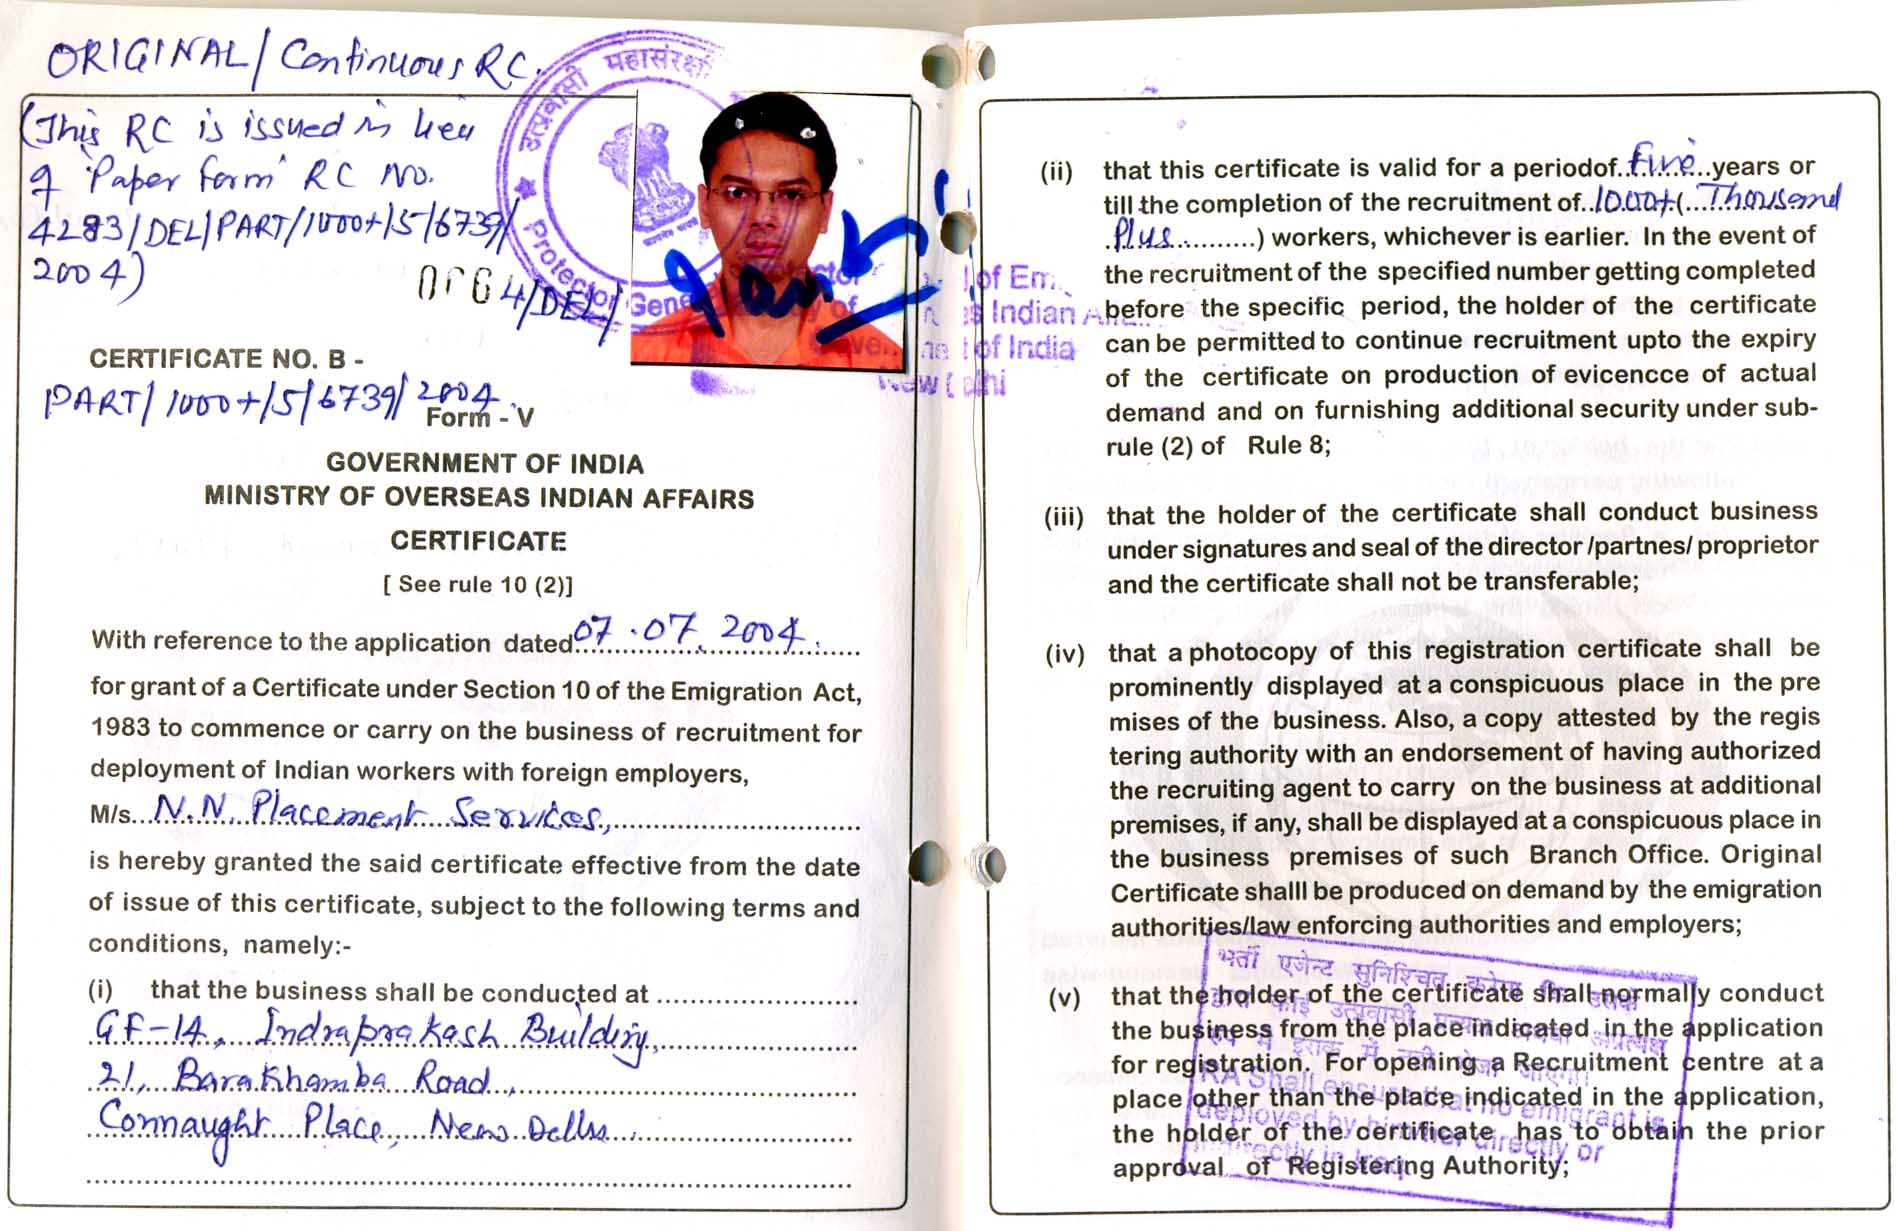 ORIGINAL/Continuous RC.
(This RC is issued in lieu
of 'Paper form' RC No.
4283/DEL/PART/1000+/5/6739/
2004)
4/DEL/
उत्प्रवासी महासंरक्षी
Protector General
CERTIFICATE NO. B -
PART/1000+/5/6739/2004.
Form - V
GOVERNMENT OF INDIA
MINISTRY OF OVERSEAS INDIAN AFFAIRS
CERTIFICATE
[ See rule 10 (2)]
With reference to the application dated 07.07.2004.
for grant of a Certificate under Section 10 of the Emigration Act,
1983 to commence or carry on the business of recruitment for
deployment of Indian workers with foreign employers,
M/s. N.N. Placement Services,
is hereby granted the said certificate effective from the date
of issue of this certificate, subject to the following terms and
conditions, namely:-
(i) that the business shall be conducted at
GF-14, Indraprakash Building,
21, Barakhamba Road,
Connaught Place, New Delhi.
of Em
s Indian
of India
New Delhi
(ii) that this certificate is valid for a periodof..five..years or
till the completion of the recruitment of..1000+(..Thousand
Plus..........) workers, whichever is earlier. In the event of
the recruitment of the specified number getting completed
before the specific period, the holder of the certificate
can be permitted to continue recruitment upto the expiry
of the certificate on production of evicencce of actual
demand and on furnishing additional security under sub-
rule (2) of Rule 8;
(iii) that the holder of the certificate shall conduct business
under signatures and seal of the director /partnes/ proprietor
and the certificate shall not be transferable;
(iv) that a photocopy of this registration certificate shall be
prominently displayed at a conspicuous place in the pre
mises of the business. Also, a copy attested by the regis
tering authority with an endorsement of having authorized
the recruiting agent to carry on the business at additional
premises, if any, shall be displayed at a conspicuous place in
the business premises of such Branch Office. Original
Certificate shalll be produced on demand by the emigration
authorities/law enforcing authorities and employers;
(v) that the holder of the certificate shall normally conduct
the business from the place indicated in the application
for registration. For opening a Recruitment centre at a
place other than the place indicated in the application,
the holder of the certificate has to obtain the prior
approval of Registering Authority;
भर्ती एजेन्ट सुनिश्चित करेगा कि उसके
द्वारा कोई उत्प्रवासी प्रत्यक्ष अथवा अप्रत्यक्ष
रूप में इराक में नहीं भेजा जाएगा
RA Shall ensure that no emigrant is
deployed by him/her directly or
indirectly in Iraq